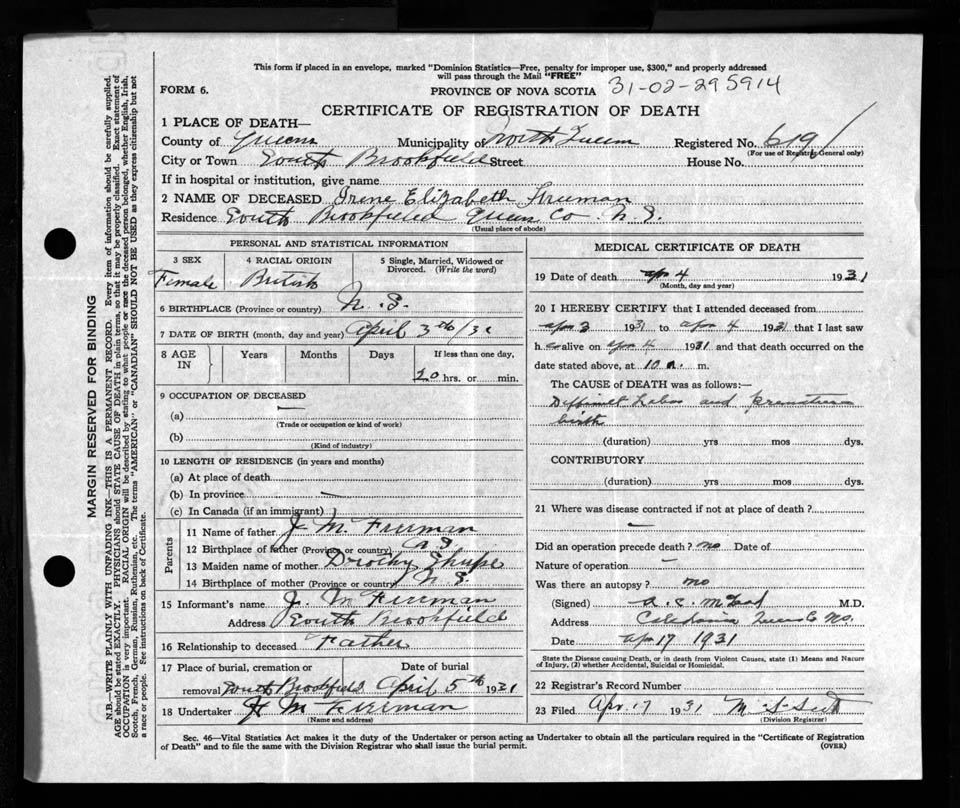 This form if placed in an envelope, marked "Dominion Statistics—Free, penalty for improper use, $300," and properly addressed
will pass through the Mail "FREE"
FORM 6.
PROVINCE OF NOVA SCOTIA 31-02-295914
CERTIFICATE OF REGISTRATION OF DEATH
1 PLACE OF DEATH—
County of Queens Municipality of North Queens Registered No. 619
(For use of Registrar General only)
City or Town South Brookfield Street House No.
If in hospital or institution, give name
2 NAME OF DECEASED Irene Elizabeth Freeman
Residence South Brookfield Queens Co. N.S.
(Usual place of abode)
PERSONAL AND STATISTICAL INFORMATION
3 SEX 4 RACIAL ORIGIN 5 Single, Married, Widowed or
Divorced. (Write the word)
Female British
6 BIRTHPLACE (Province or country) N.S.
7 DATE OF BIRTH (month, day and year) April 3th/31
8 AGE IN Years Months Days If less than one day,
20 hrs. or min.
9 OCCUPATION OF DECEASED
(a) —
(Trade or occupation or kind of work)
(b)
(Kind of industry)
10 LENGTH OF RESIDENCE (in years and months)
(a) At place of death
(b) In province —
(c) In Canada (if an immigrant)
Parents
11 Name of father J. M. Freeman
12 Birthplace of father (Province or country) N.S.
13 Maiden name of mother Dorothy Shupe
14 Birthplace of mother (Province or country) N.S.
15 Informant's name J. M. Freeman
Address South Brookfield
16 Relationship to deceased Father
17 Place of burial, cremation or Date of burial
removal South Brookfield April 5th 1931
18 Undertaker H M Freeman
(Name and address)
MEDICAL CERTIFICATE OF DEATH
19 Date of death apr 4 1931
(Month, day and year)
20 I HEREBY CERTIFY that I attended deceased from
apr 3 1931 to apr 4 1931 that I last saw
h er alive on apr 4 1931 and that death occurred on the
date stated above, at 10 a. m.
The CAUSE of DEATH was as follows:—
Difficult Labor and premature
birth
(duration) yrs mos dys.
CONTRIBUTORY
(duration) yrs mos dys.
21 Where was disease contracted if not at place of death?
—
Did an operation precede death? no Date of
Nature of operation —
Was there an autopsy? no
(Signed) A. C. M.D.
Address Caledonia Queens Co
Date apr 17 1931
State the Disease causing Death, or in death from Violent Causes, state (1) Means and Nature
of Injury, (2) whether Accidental, Suicidal or Homicidal.
22 Registrar's Record Number
23 Filed Apr. 17 1931
(Division Registrar)
Sec. 46—Vital Statistics Act makes it the duty of the Undertaker or person acting as Undertaker to obtain all the particulars required in the "Certificate of Registration
of Death" and to file the same with the Division Registrar who shall issue the burial permit.
(OVER)
MARGIN RESERVED FOR BINDING
N.B.—WRITE PLAINLY WITH UNFADING INK—THIS IS A PERMANENT RECORD. Every item of information should be carefully supplied.
AGE should be stated EXACTLY. PHYSICIANS should STATE CAUSE OF DEATH in plain terms, so that it may be properly classified. Exact statement of
OCCUPATION is very important. RACIAL ORIGIN will be described by stating to what people or race the deceased person belonged, whether English, Irish,
Scotch, French, German, Russian, Ruthenian, etc. The terms "AMERICAN" or "CANADIAN" SHOULD NOT BE USED as they express citizenship but not
a race or people. See instructions on back of Certificate.